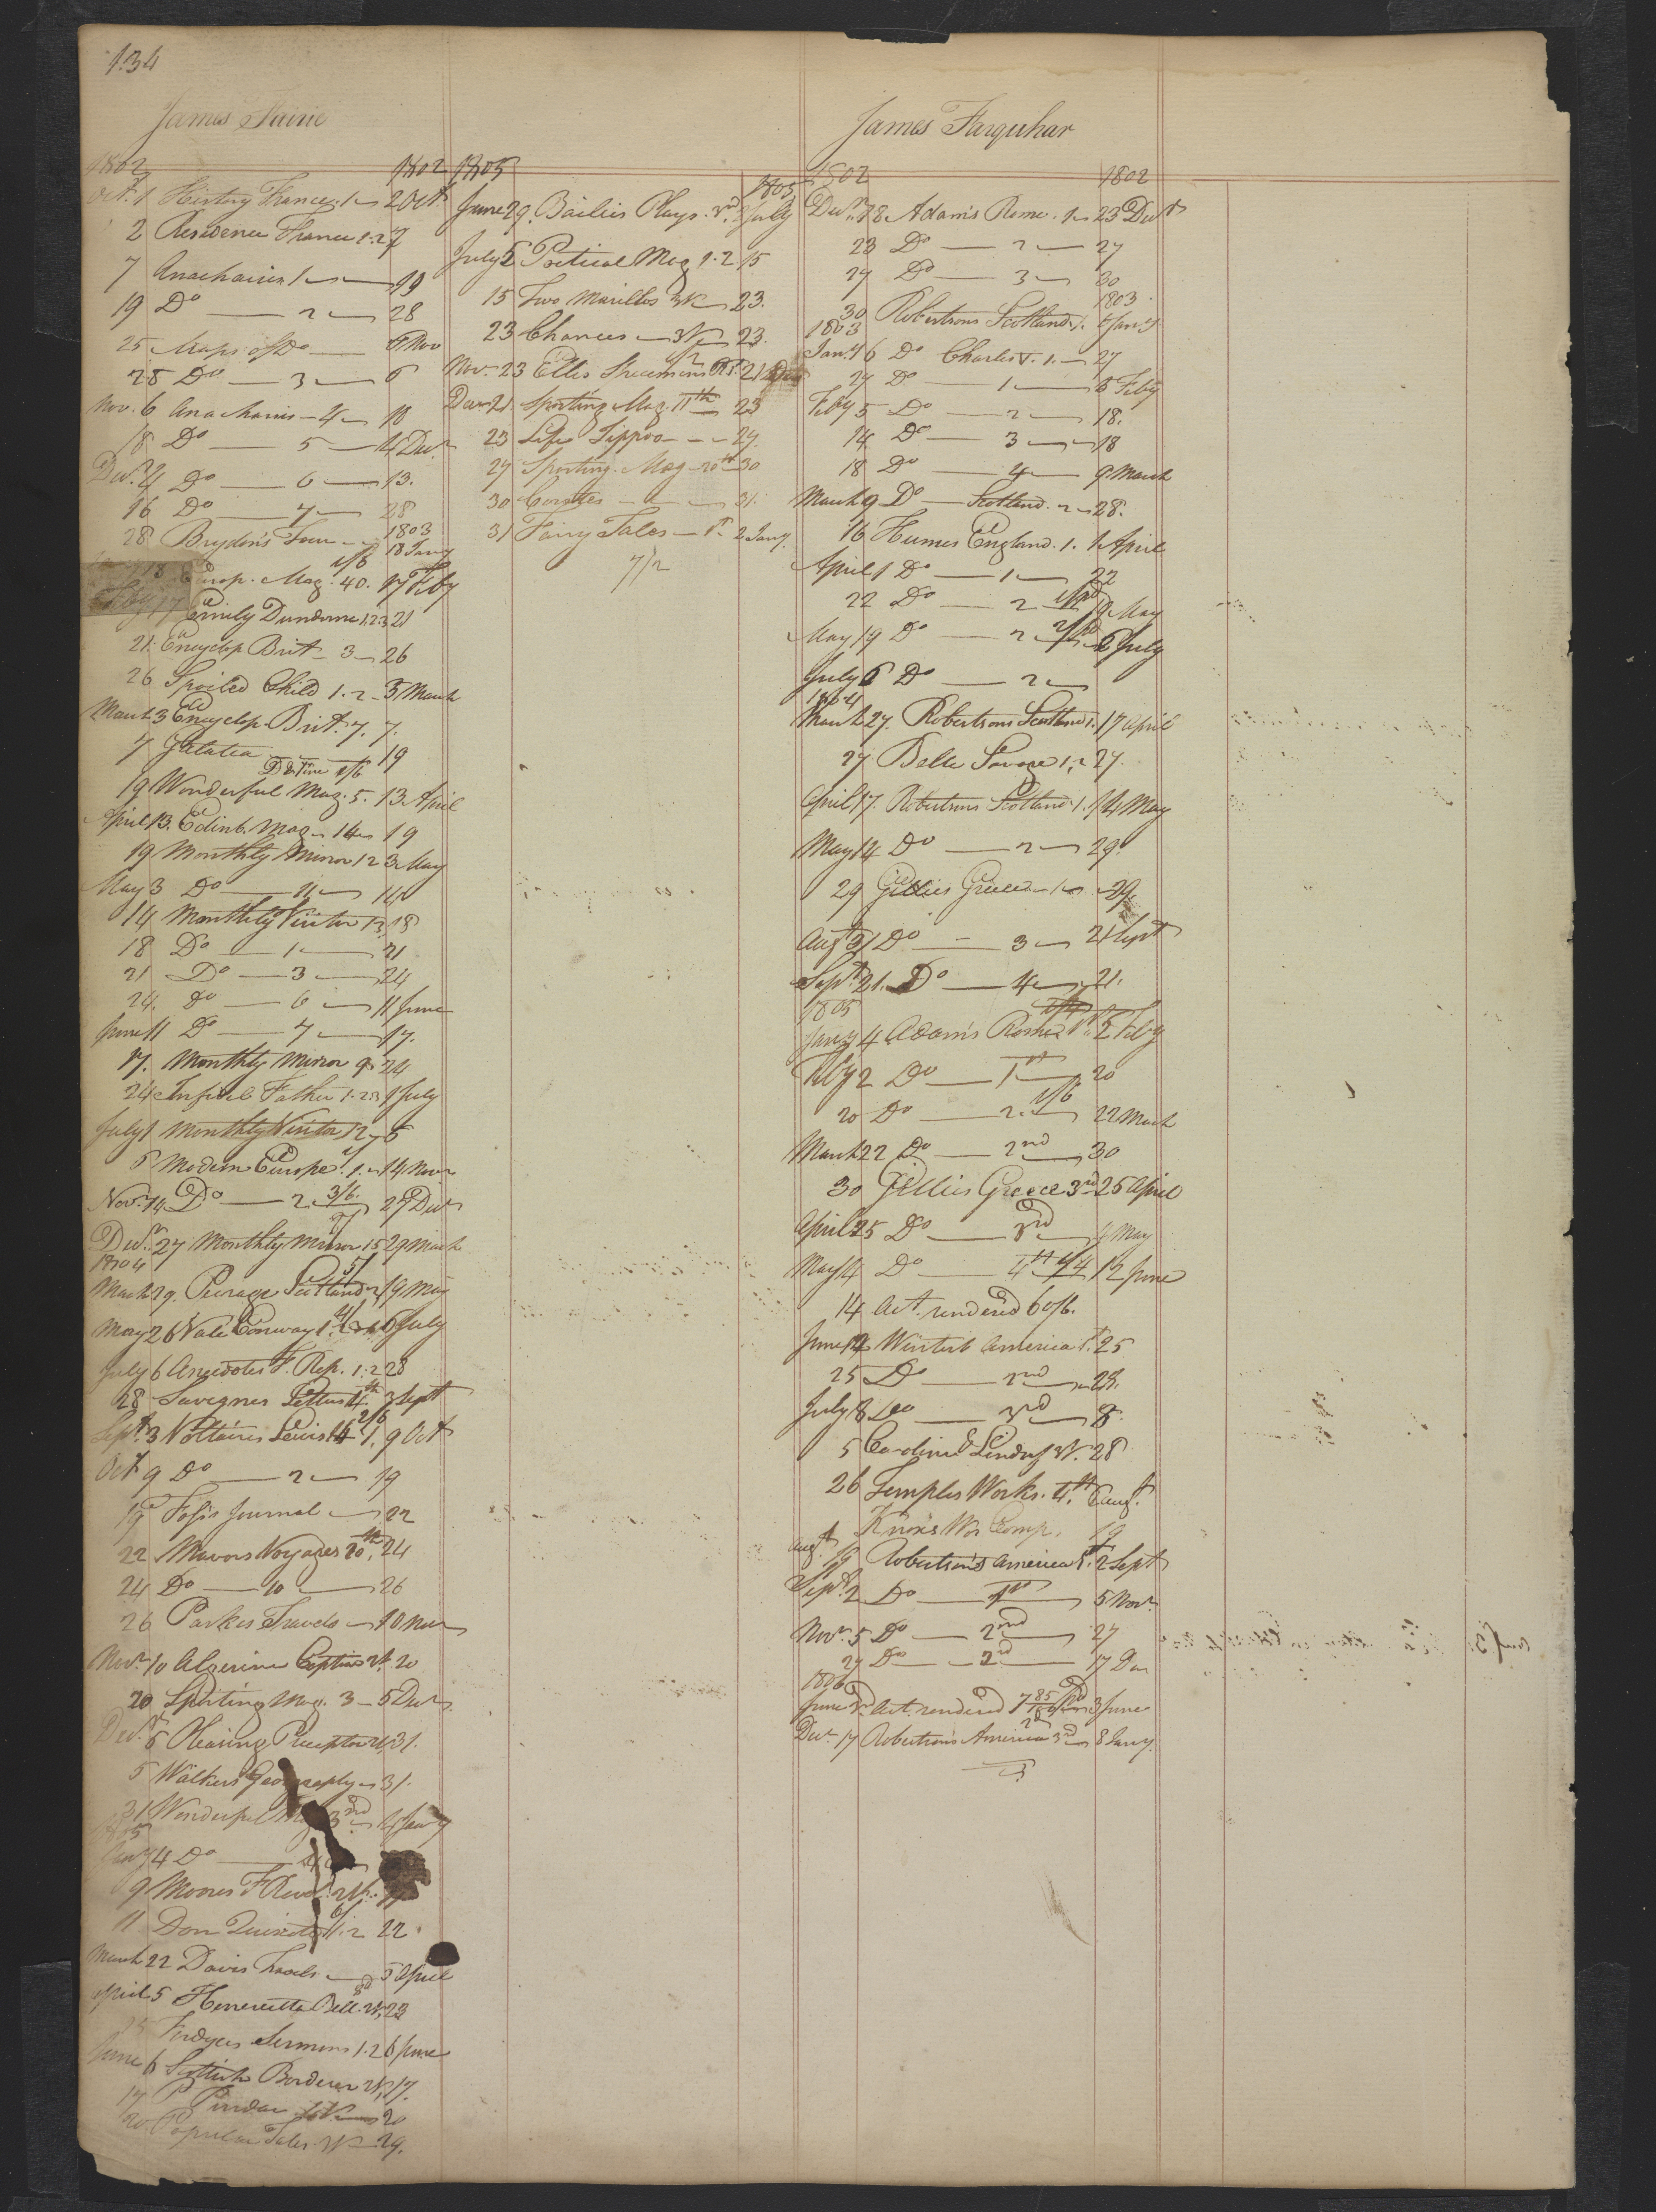 134
James Fairie
1802 1802
Oct. 1 History France 1 2 Oct
2 Residence France 1.2 7
7 Anacharsis 1 19
19 Do 2 28
25 Maps of Do 6 Nov
28 Do 3 6
Nov. 6 Anacharsis 4 18
18 Do 5 4 Decr
Decr. 4 Do 6 13.
16 Do 7 28
1803
28 Brydon's Tour 18 Jany
1/6
18 Europ. Mag. 40. 17 Feby
Feby 17 Emily Dundorne 1.2.3 21
21. Encyclop Brit 3 26
26 Spoiled Child 1.2 3 March
March 3 Encyclop. Brit. 7. 7.
7 Galatea 19
Do Fine 1/6
19 Wonderful Mag. 5. 13 April
April 13. Edinb. Mag 14 19
19 Monthly Mirror 12 3 May
May 3 Do 11 14
14 Monthly Visitor 13 18
18 Do 1 21
21 Do 3 24
24. Do 6 11 June
June 11 Do 7 17.
17. Monthly Mirror 9 24
24 Infidel Father 1.2.3 1 July
July 1 Monthly Visitor 12 5
5 Modern Europe 1. 14 Novr
Novr. 14 Do 2 3/6. 27 Decr
Decr. 27 Monthly Mirror 15 29 March
1804
5/
March 29. Peerage Scotland 19 May
May 26 Vale Conway 1. 6 July
July 6 Anecdotes F. Rep. 1.2 28
28 Savegnes Letters 4th 3 Sept
2/6
Sept. 3 Voltaires Lewis 14 1. 9 Oct
Oct 9 Do 2 19
19 Journal 22
22 Mavors Voyages 20th. 24
24 Do 10 26
26 Parkes Travels 10 Novr
Novr. 10 Algerine Captive 20
20 Sporting Mag. 3 5 Decr
Decr. 5 Pleasing Preceptor 31.
5 Walkers Geography 31.
31 Wonderful Mag 3rd 4 Jany
1805
Jany 4 Do 4
9 Moores F Revol.
11 Don Quixote 1.2 22
March 22 Davis Travels 5 April
April 5 Henrietta Bell. 23
Fordyces Sermons 1.2 6 June
June 6 Scottish Borderer 17.
17 P Pindar 20
20 Popular Tales 29.
1805
1805
June 29. Bailies Plays. 5 July
July 5 Poetical Mag 1.2 15
15 Two Marillos 3V 23.
23 Chances 3V 23.
Nov. 23 Ellis Specimens 21 Decr
Decr 21. Sporting Mag. 11th 23
23 Life Tippoo 27.
27 Sporting Mag 20th 30
30 Comtes 31.
31 Fairy Tales 1st. 2 Jany.
7/2
James Farquhar
1802 1802
Decr. 18 Adam's Rome. 1 23 Decr
23 Do 2 27
27 Do 3 30
1803
30 Robertsons Scotland 1. 6 Jany
1803
Jany. 6 Do Charles V. 1. 27
27 Do 1 5 Feby
Feby 5 Do 2 18.
14 Do 3 18
18 Do 4 9 March
March 9 Do Scotland. 2 28.
16 Humes England. 1. 1 April
April 1 Do 1 22
22 Do 2 19 May
May 19 Do 2 6 July
July 6 Do 2
1804
March 27. Robertsons Scotland 1. 17 April
27 Belle Savage 1.2 27.
April 17. Robertsons Scotland 1. 14 May
May 14 Do 2 29.
29 Gillies Greece 1 29
Augt 31 Do 3 21 Sept
Sept. 21. Do 4 21.
1805
Jany 4 Adam's Rome 1st. 2 Feby
Feby 2 Do 1st 20
1/6
20 Do 2. 22 March
March 22 Do 2nd 30
30 Gillies Greece 3rd 25 April
April 25 Do 3rd 4 May
May 4 Do 4th 12 June
14 Act. rendered 60/6.
June 12 Winterb America 1. 25
25 Do 2nd 28.
July 8 Do 3rd 8.
5 Caroline Lindsy 3V. 28
26 Temples Works. 4th. 6 Augt.
Knox's Wor Comp. 19
Augt. 19 Robertson's America 1st. 2 Sept
Sept. 2 Do 1st 5 Novr.
Novr. 5 Do 2nd 27
27 Do 2nd 17 Dec
1806
June 3rd Act. rendered 3 June
Decr. 17 Robertsons America 3rd 8 Jany.